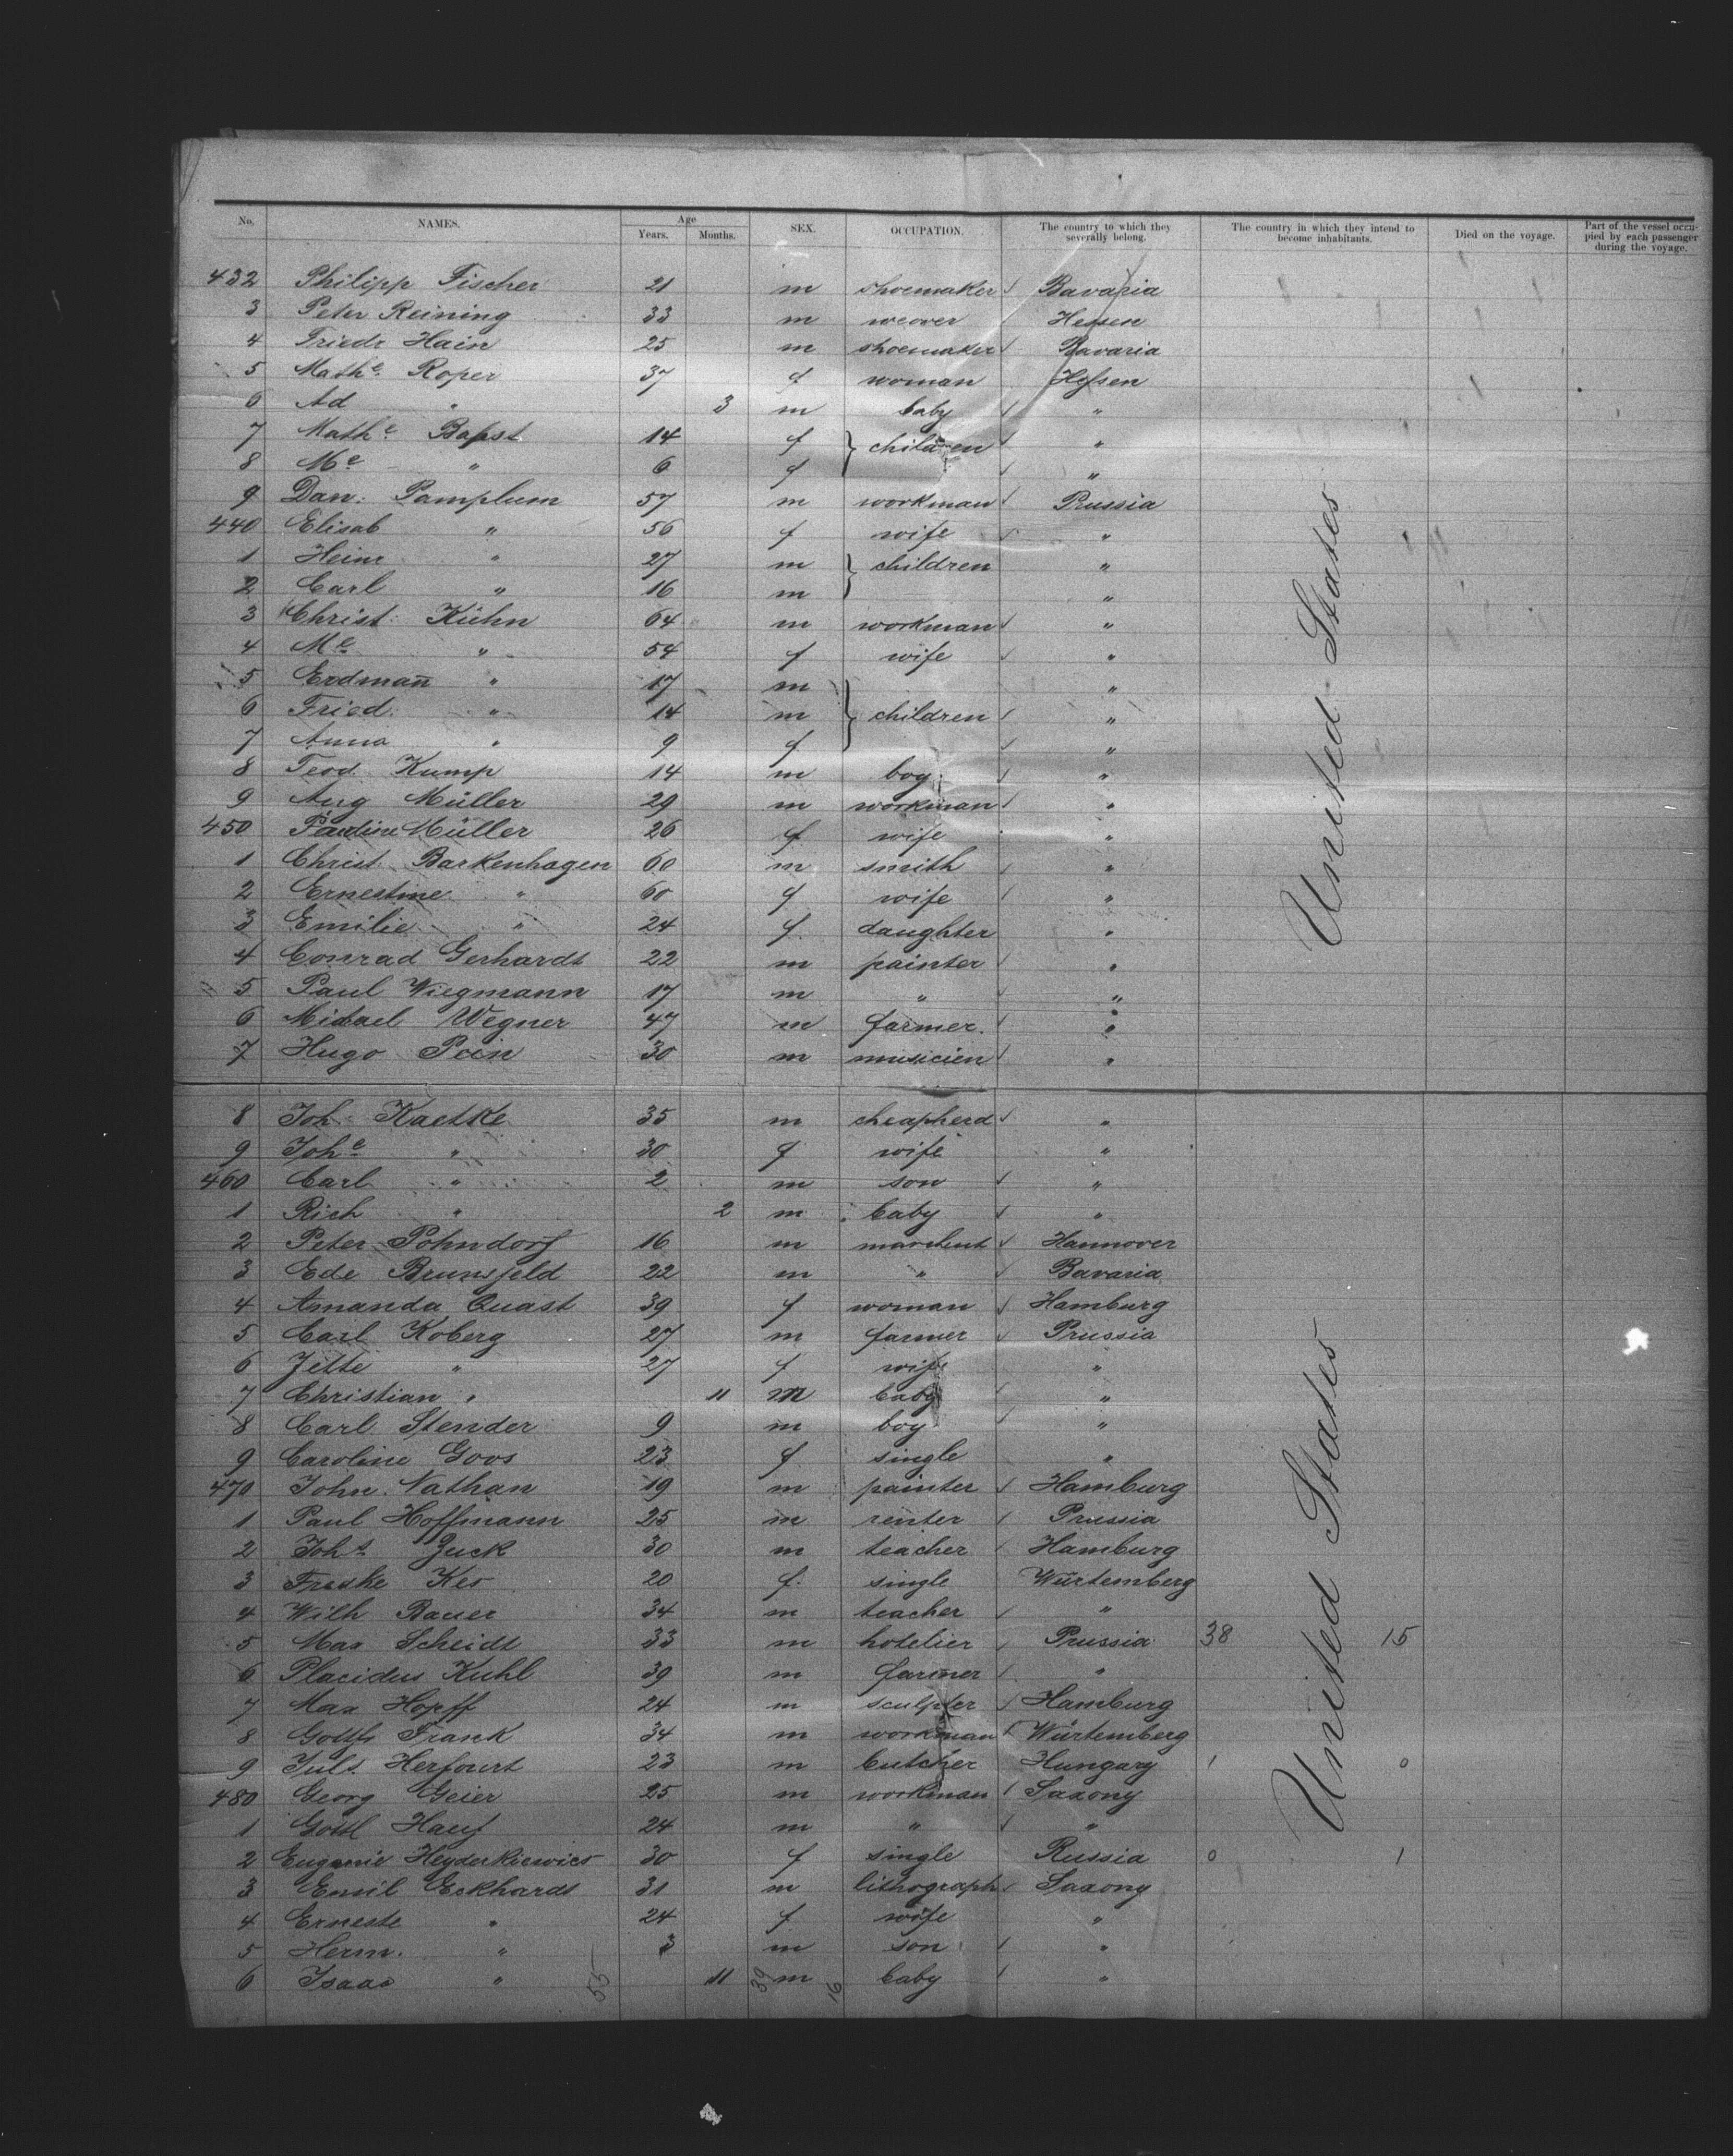 No. NAMES. Age Years. Months. SEX. OCCUPATION. The country to which they severally belong. The country in which they intend to become inhabitants. Died on the voyage. Part of the vessel occupied by each passenger during the voyage.
432 Philipp Fischer 21 m shoemaker Bavaria
3 Peter Reining 33 m weover Hessen
4 Friedr Hain 25 m shoemaker Bavaria
5 Mathe Roper 37 f woman Hessen
6 Ad " 3 m baby "
7 Mathe Bapst 14 f children "
8 Me " 6 f "
9 Dan: Pamplum 57 m workman Prussia
440 Elisab " 56 f wife "
1 Heinr " 27 m children "
2 Carl " 16 m "
3 Christ: Kühn 64 m workman "
4 Me " 54 f wife "
5 Erdman̄ " 17 m "
6 Fried. " 14 m children "
7 Anna " 9 f "
8 Teod Kump 14 m boy "
9 Aug Müller 29 m workman "
450 Pauline Müller 26 f wife "
1 Christ. Barkenhagen 60 m smith "
2 Ernestine " 60 f wife "
3 Emilie " 24 f daughter "
4 Conrad Gerhardt 22 m painter "
5 Paul Wiegmann 17 m " "
6 Michael Wegner 47 m farmer. "
7 Hugo Pein 30 m musicien "
United States
8 Joh: Kaetke 35 m cheapherd "
9 Johe " 30 f wife "
460 Carl " 2 m son "
1 Rich " 2 m baby "
2 Peter Pohndorf 16 m marchent Hannover
3 Ede Brunsfeld 22 m " Bavaria
4 Amanda Quast 39 f woman Hamburg
5 Carl Koberg 27 m farmer Prussia
6 Jette " 27 f wife "
7 Christian " 11 m baby "
8 Carl Stender 9 m boy "
9 Caroline Goos 23 f single "
470 John Nathan 19 m painter Hamburg
1 Paul Hoffmann 25 m renter Prussia
2 Johs Zuck 30 m teacher Hamburg
3 Kes 20 f. single Würtemberg
4 Wilh Bauer 34 m teacher "
5 Max Scheidt 33 m hotelier Prussia 38 15
6 Placidus Kuhl 39 m farmer "
7 Max Hopff 24 m sculpter Hamburg
8 Gottfr Frank 34 m workman Würtemberg
9 Juls Herfourt 23 m butcher Hungary 1 0
480 Georg Geier 25 m workman Saxony
1 Gottl Hauf 24 m " "
2 Eugenie Heyderkiewics 30 f single Russia 0 1
3 Emil Eckhardt 31 m lithograph Saxony
4 Erneste " 24 f wife "
5 Herm. " 3 m son "
6 Isaac " 55 11 39 m 16 baby "
United States